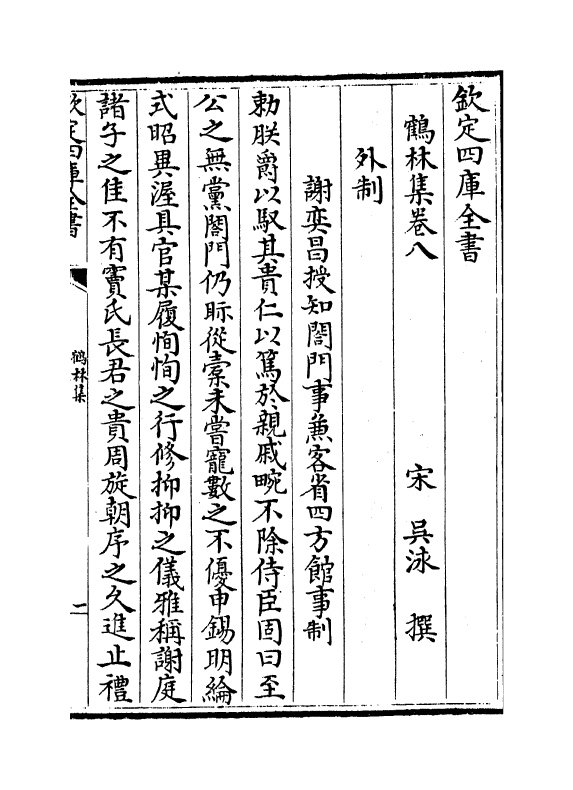 欽定四庫全書
鶴林集卷八
宋 吳泳 撰
外制
謝奕昌授知閤門事兼客省四方館事制
勅朕爵以馭其貴仁以篤於親戚畹不除侍臣固曰至
公之無黨閤門仍眎從橐未嘗寵數之不優申錫明綸
式昭異渥具官某履恂恂之行修抑抑之儀雅稱謝庭
諸子之佳不有竇氏長君之貴周旋朝序之久進止禮
欽定四庫全書
鶴林集
二